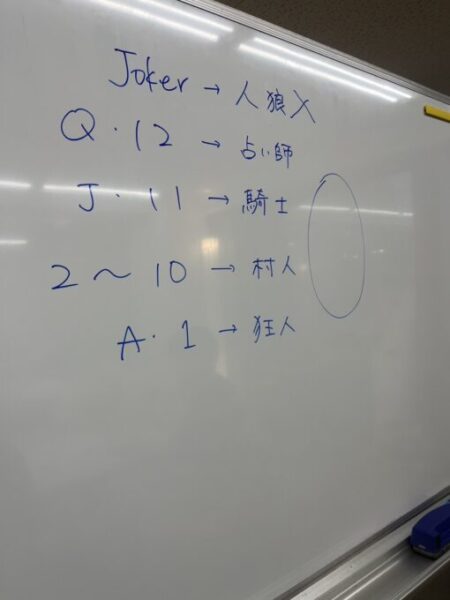 Joker → 人狼X
Q・12 → 占い師
J・11 → 騎士
2〜10 → 村人
A・1 → 狂人